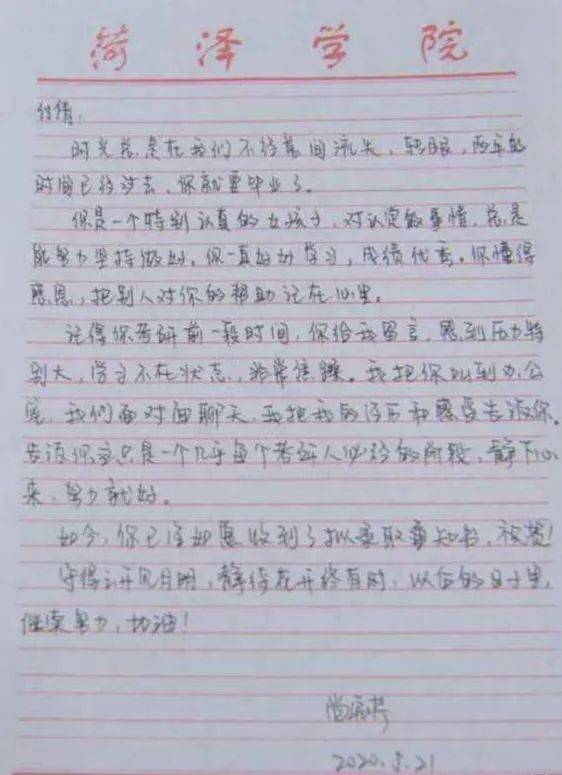 菏泽学院
付倩:
时光总是在我们不经意间流失,转眼,两年的
时间已经过去,你就要毕业了。
你是一个特别认真的女孩子,对认定的事情,总是
能努力坚持做好。你一直好好学习,成绩优秀。你懂得
感恩,把别人对你的帮助记在心里。
记得你考研前一段时间,你给我留言,感到压力特
别大,学习不在状态,非常焦躁。我把你叫到办公
室,我们面对面聊天,我把我的经历和感受告诉你。
告诉你这只是一个几乎每个考研人必经的阶段,静下心
来,努力就好。
如今,你已经如愿收到了拟录取通知书,祝贺!
守得云开见月明,静待花开终有时,以后的日子里,
继续努力,加油!
2020.5.21